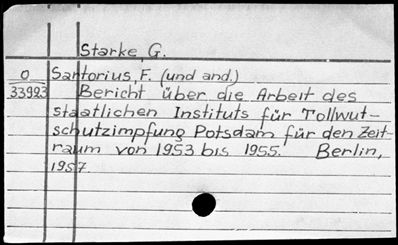 Starke, G.
O Sartorius, F. (und and.)
33993 Bericht über die Arbeit des
staatlichen Instituts für Tollwut-
schutzimpfung Potsdam für den Zeit-
raum von 1953 bis 1955. Berlin,
1957.